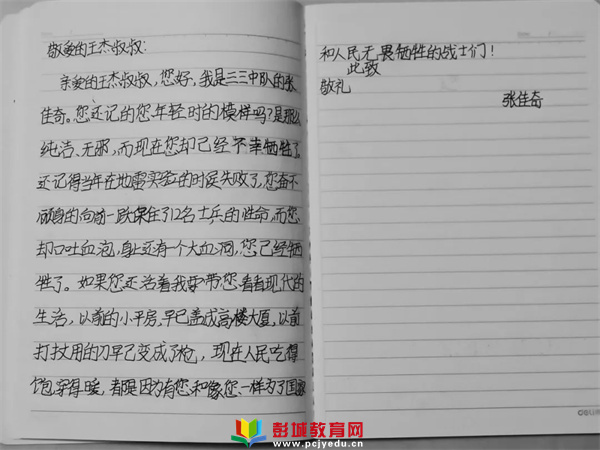 敬爱的王杰叔叔:
亲爱的王杰叔叔,您好,我是三三中队的张
佳奇。您还记的您年轻时的模样吗?是那么
纯洁、无邪,而现在您却已经不幸牺牲了
还记得当年在地雷实验的时候失败了,您奋不
顾身的向前一跃保住了12名士兵的性命,而您
却口吐血泡,身上还有一个大血洞,您已经牺
牲了。如果您还活着我要带您看看现代的
生活,以前的小平房,早已盖成高楼大厦,以前
打技用的刀早已变成了枪,现在人民吃得
饱穿得暖,都是因为有您和像您一样为了国家
和人民无畏牺牲的战士们!
此致
敬礼
张佳奇
彭城教育网
www.pcjyedu.cn